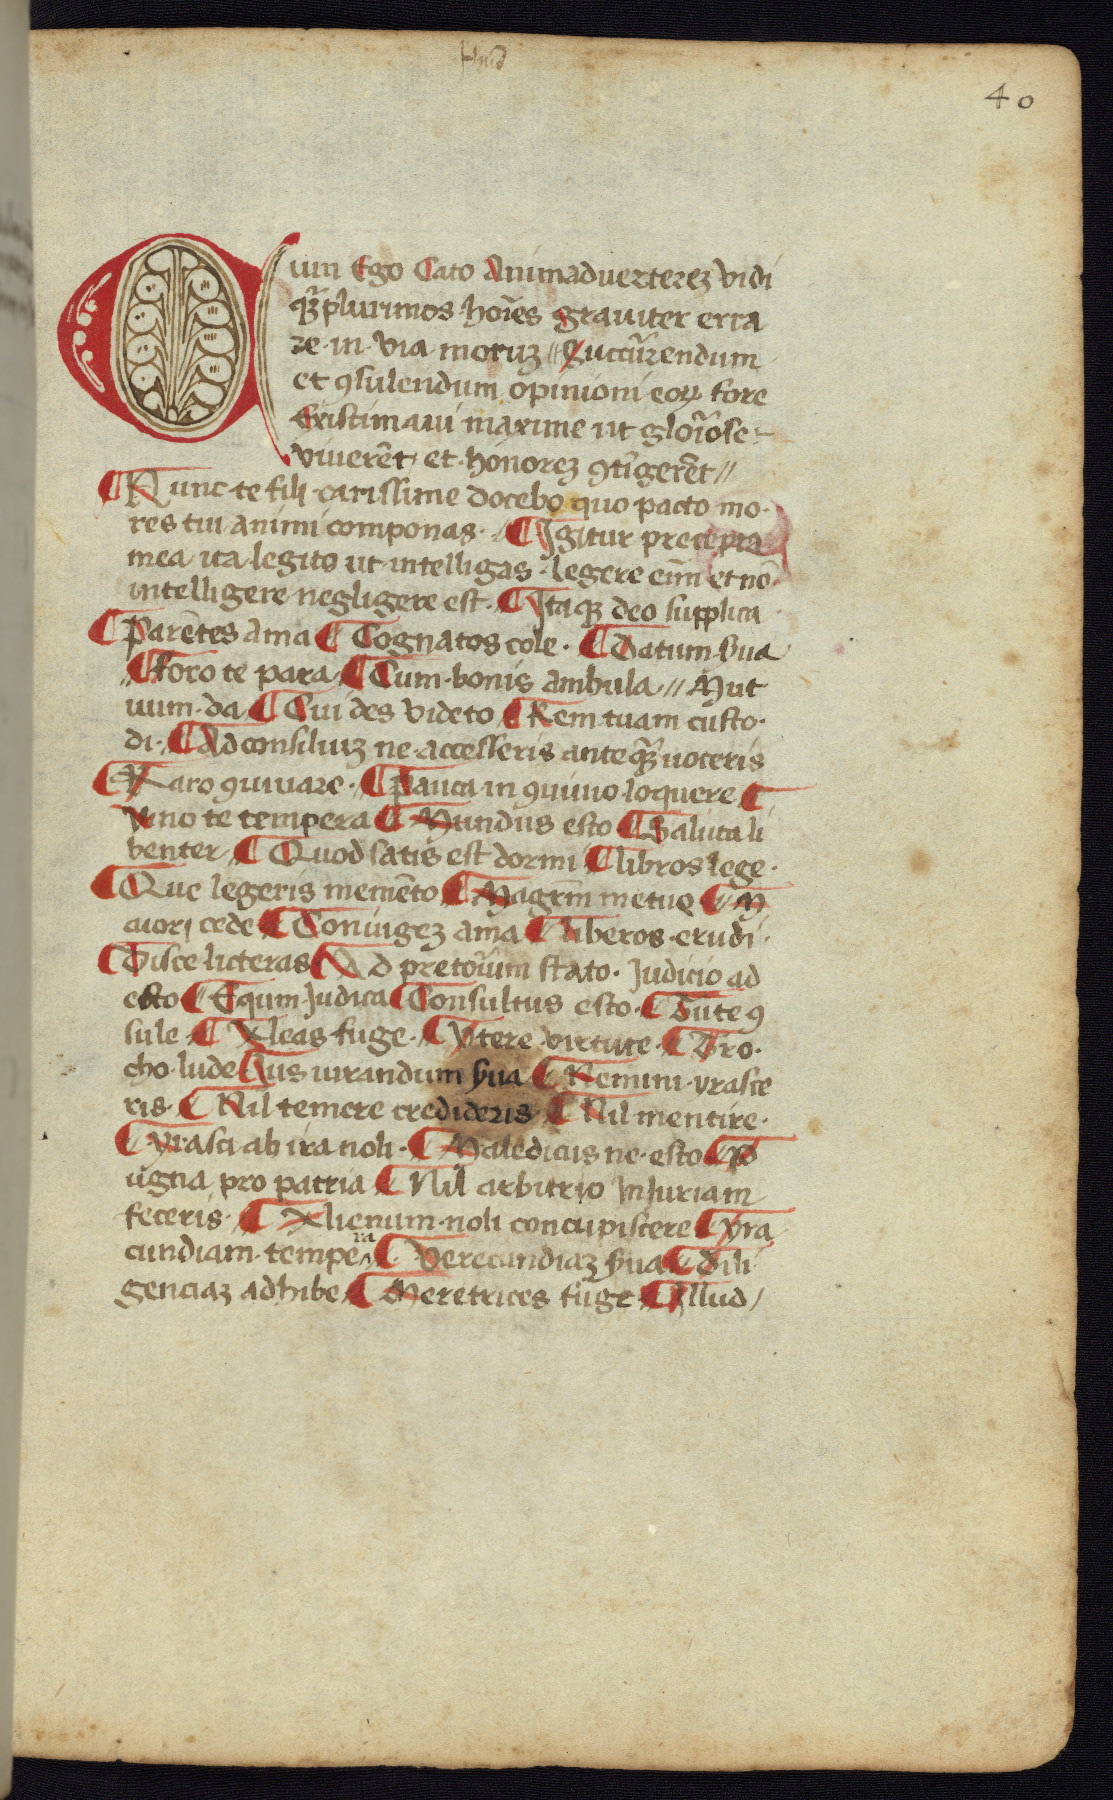 40
Cum Ego Cato Animadverterez vidi
q̄ʒ plurimos hoīes graviter erra
re in via moruʒ // Succūrendum
et ꝯsulendum opinioni eoꝝ fore
Existimaui maxime ut glorīose
viverēt, et honoreʒ ꝯtīgerēt //
¶ Nunc te fili carissime docebo quo pacto mo
res tui animi componas. ¶ Igitur precepta
mea ita legito ut intelligas : legere eīm et nō
intelligere negligere est. ¶ Itaqʒ deo supplica
¶ Parētes ama ¶ Cognatos cole. ¶ Datum sua
¶ foro te para ¶ Cum bonis ambula // Mut
uum da ¶ Cui des videto ¶ Rem tuam custo
di. ¶ Ad consiliuʒ ne accesseris anteq̄ʒ voceris
¶ Raro ꝯvivare. ¶ Pauca in ꝯvivio loquere ¶
vino te tempera ¶ Mundus esto ¶ Saluta li
benter ¶ Quod satis est dormi ¶ libros lege.
¶ Que legeris memēto ¶ Magrm̄ metue ¶ M
aiori cede ¶ Coniugeʒ ama ¶ liberos erudi.
¶ Disce licteras ¶ Ad pretorīum stato. Judicio ad
esto ¶ Equm Judica ¶ Consultus esto. ¶ Tute ꝯ
sule ¶ Aleas fuge. ¶ Vtere virtute. ¶ Tro
cho lude ¶ Jus iurandum sua ¶ Nemini yrasce
ris. ¶ Nil temere credideris ¶ Nil mentire.
¶ yrasci ab ira noli. ¶ Maledicus ne esto ¶ P
ugna pro patria ¶ Nil arbitrio Injuriam
feceris. ¶ Alienum noli concupiscere ¶ yra
cundiam tempera ¶ Verecundiaʒ sua ¶ Dili
genciaʒ adhibe ¶ Meretrices fuge ¶ Illud /